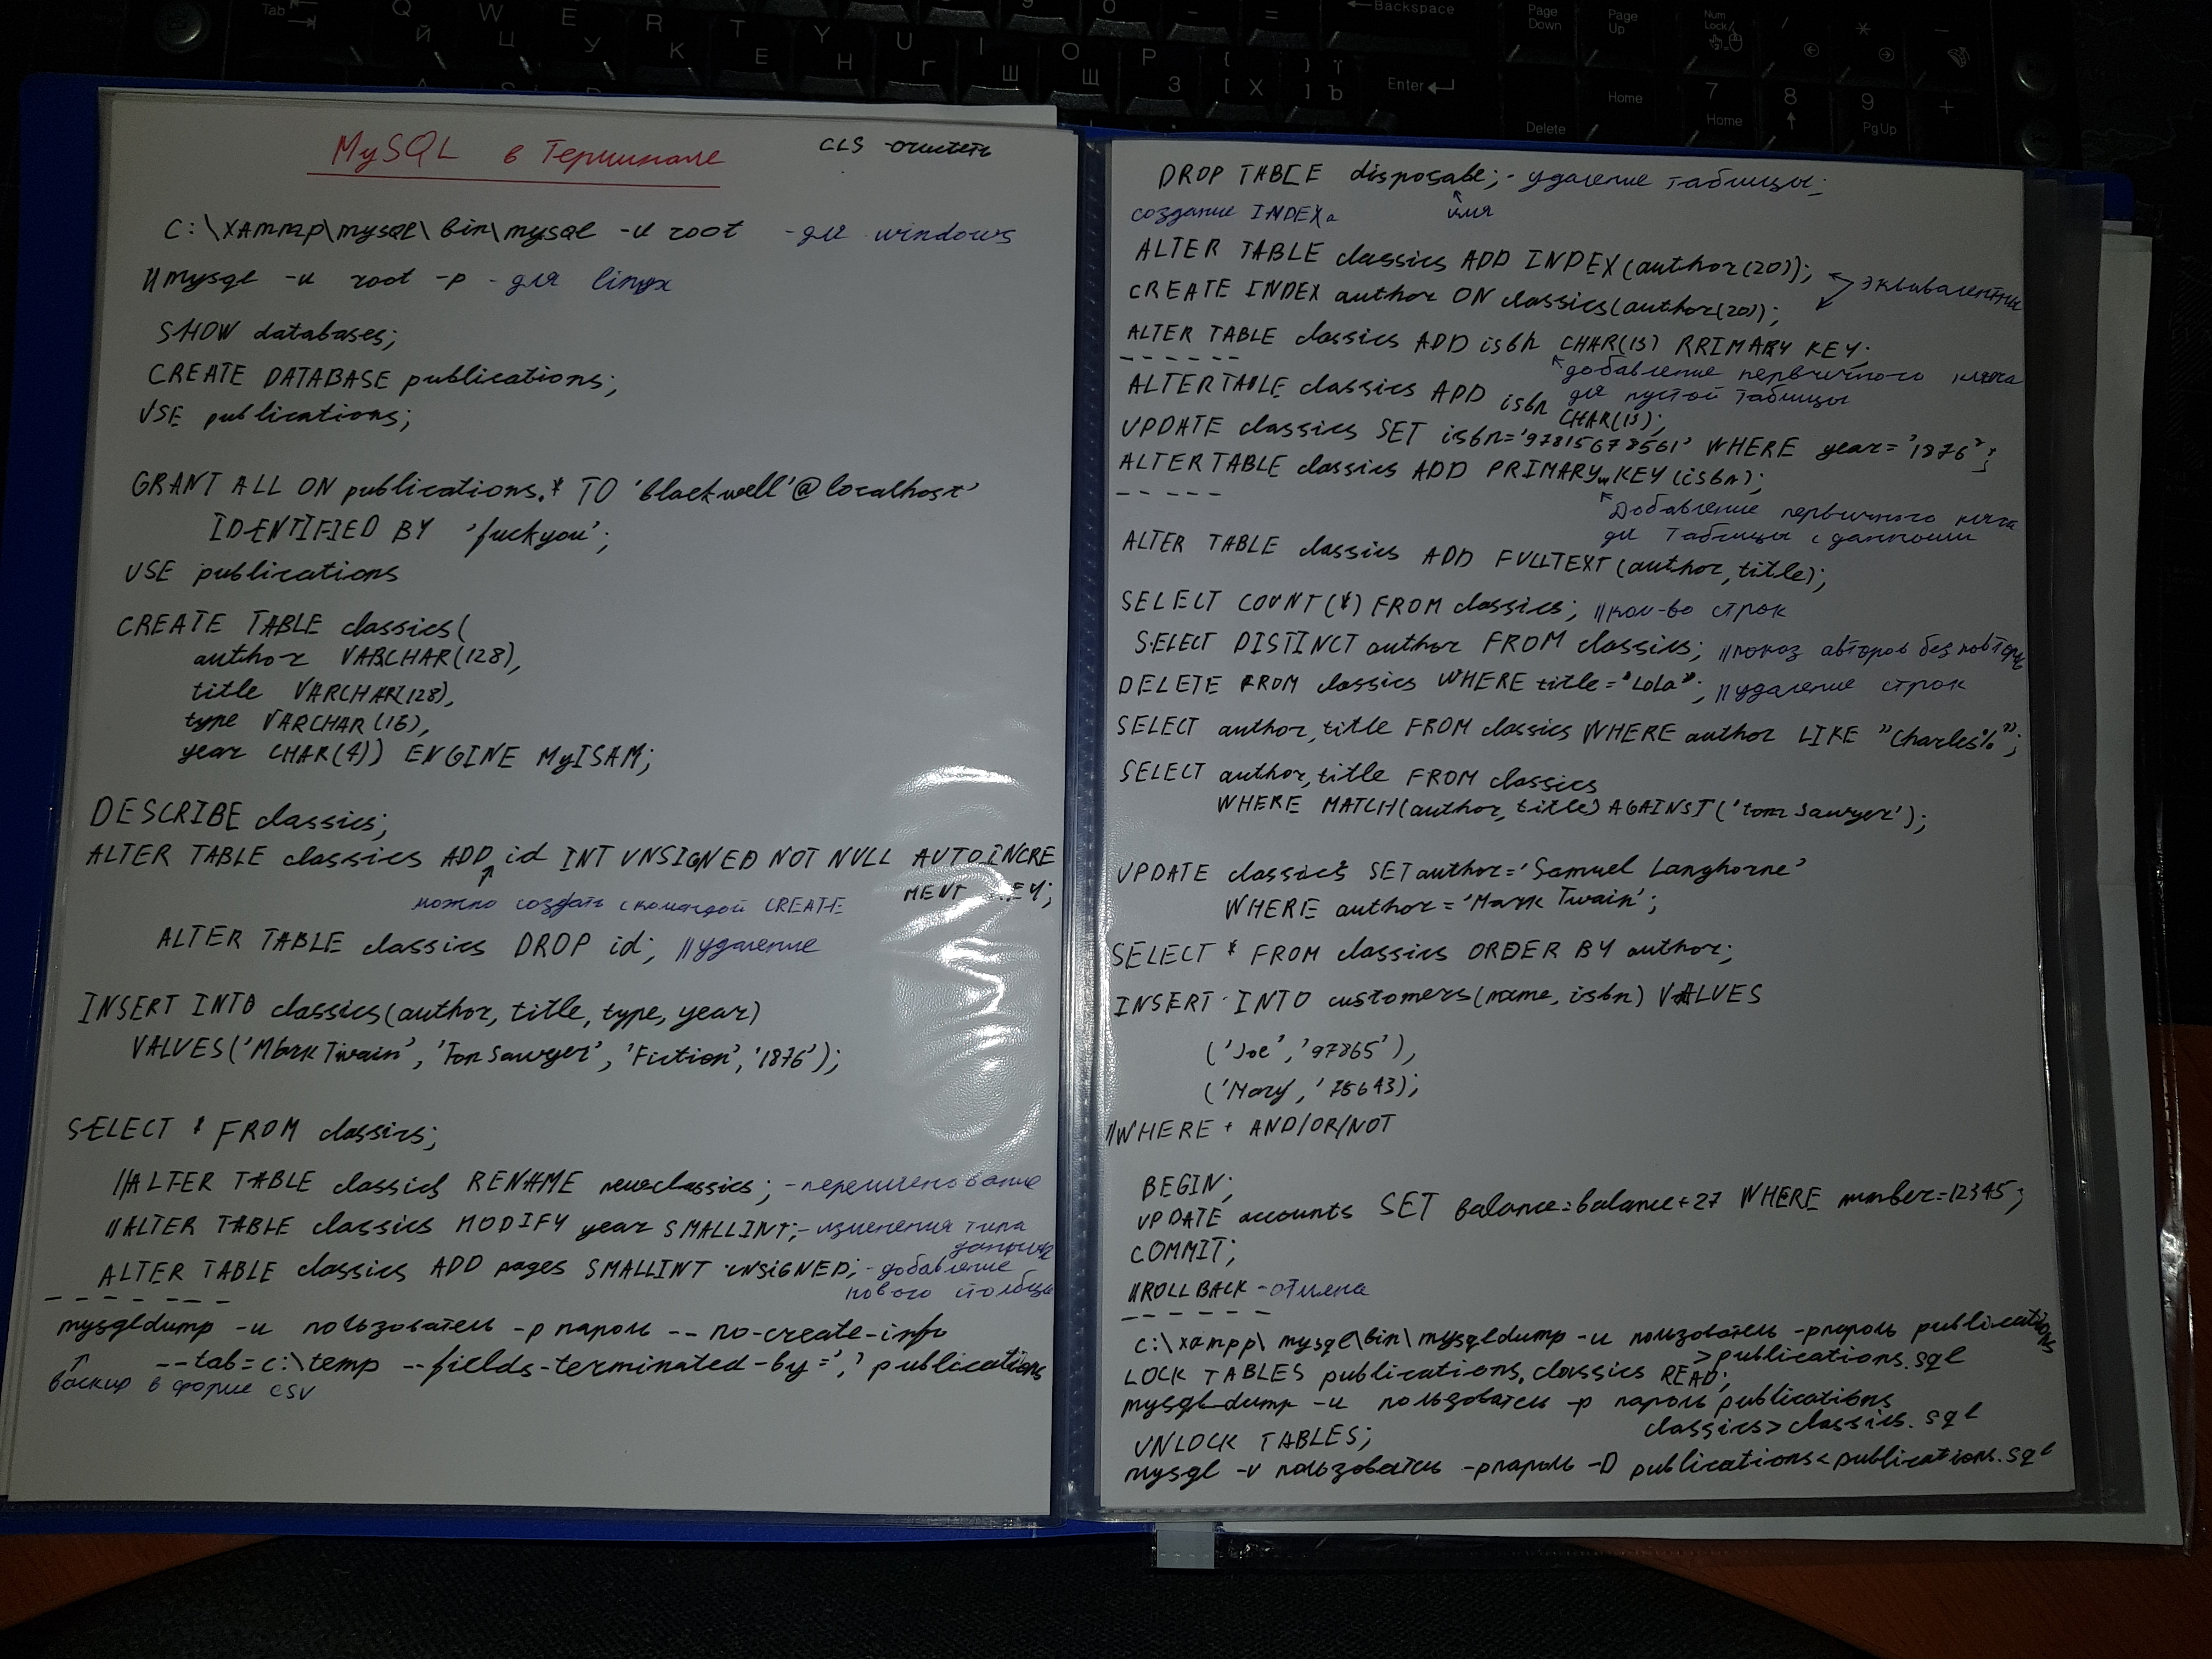 MySQL в Терминале
CLS -очистить
C:\xampp\mysql\bin\mysql -u root - для windows
//mysql -u root -p - для linux
SHOW databases;
CREATE DATABASE publications;
USE publications;
GRANT ALL ON publications.* TO 'blackwell'@localhost'
IDENTIFIED BY 'fuckyou';
USE publications
CREATE TABLE classics(
author VARCHAR(128),
title VARCHAR(128),
type VARCHAR(16),
year CHAR(4)) ENGINE MyISAM;
DESCRIBE classics;
ALTER TABLE classics ADD id INT UNSIGNED NOT NULL AUTO_INCRE
MENT KEY;
можно создать с командой CREATE
ALTER TABLE classics DROP id; //удаление
INSERT INTO classics(author, title, type, year)
VALUES('Mark Twain', 'Tom Sawyer', 'Fiction', '1876');
SELECT * FROM classics;
//ALTER TABLE classics RENAME newclassics; -переименование
//ALTER TABLE classics MODIFY year SMALLINT; -изменения типа
данных
ALTER TABLE classics ADD pages SMALLINT UNSIGNED; -добавление
нового столбца
-------
mysqldump -u пользователь -p пароль --no-create-info
--tab=c:\temp --fields-terminated-by=',' publications
бэкир в форме CSV
DROP TABLE disposable; - удаление таблицы;
имя
создание INDEXа
ALTER TABLE classics ADD INDEX(author(20));
CREATE INDEX author ON classics(author(20));
эквивалентны
ALTER TABLE classics ADD isbn CHAR(13) RRIMARY KEY;
------
добавление первичного ключа
для пустой таблицы
ALTER TABLE classics ADD isbn CHAR(13);
UPDATE classics SET isbn='97815678561' WHERE year='1876';
ALTER TABLE classics ADD PRIMARY KEY(isbn);
------
Добавление первичного ключа
для таблицы с данными
ALTER TABLE classics ADD FULLTEXT(author, title);
SELECT COUNT(*) FROM classics; //кол-во строк
SELECT DISTINCT author FROM classics; //показ авторов без повтора
DELETE FROM classics WHERE title="Lola"; //удаление строк
SELECT author, title FROM classics WHERE author LIKE "Charles%";
SELECT author, title FROM classics
WHERE MATCH(author, title) AGAINST('tom Sawyer');
UPDATE classics SET author='Samuel Langhorne'
WHERE author='Mark Twain';
SELECT * FROM classics ORDER BY author;
INSERT INTO customers(name, isbn) VALUES
('Joe','97865'),
('Mary','75643);
//WHERE + AND/OR/NOT
BEGIN;
UPDATE accounts SET balance=balance+27 WHERE number=12345;
COMMIT;
//ROLLBACK -отмена
------
C:\xampp\mysql\bin\mysqldump -u пользователь -pпароль publications
>publications.sql
LOCK TABLES publications.classics READ;
mysqldump -u пользователь -p пароль publications
classics>classics.sql
UNLOCK TABLES;
mysql -u пользователь -pпароль -D publications<publications.sql